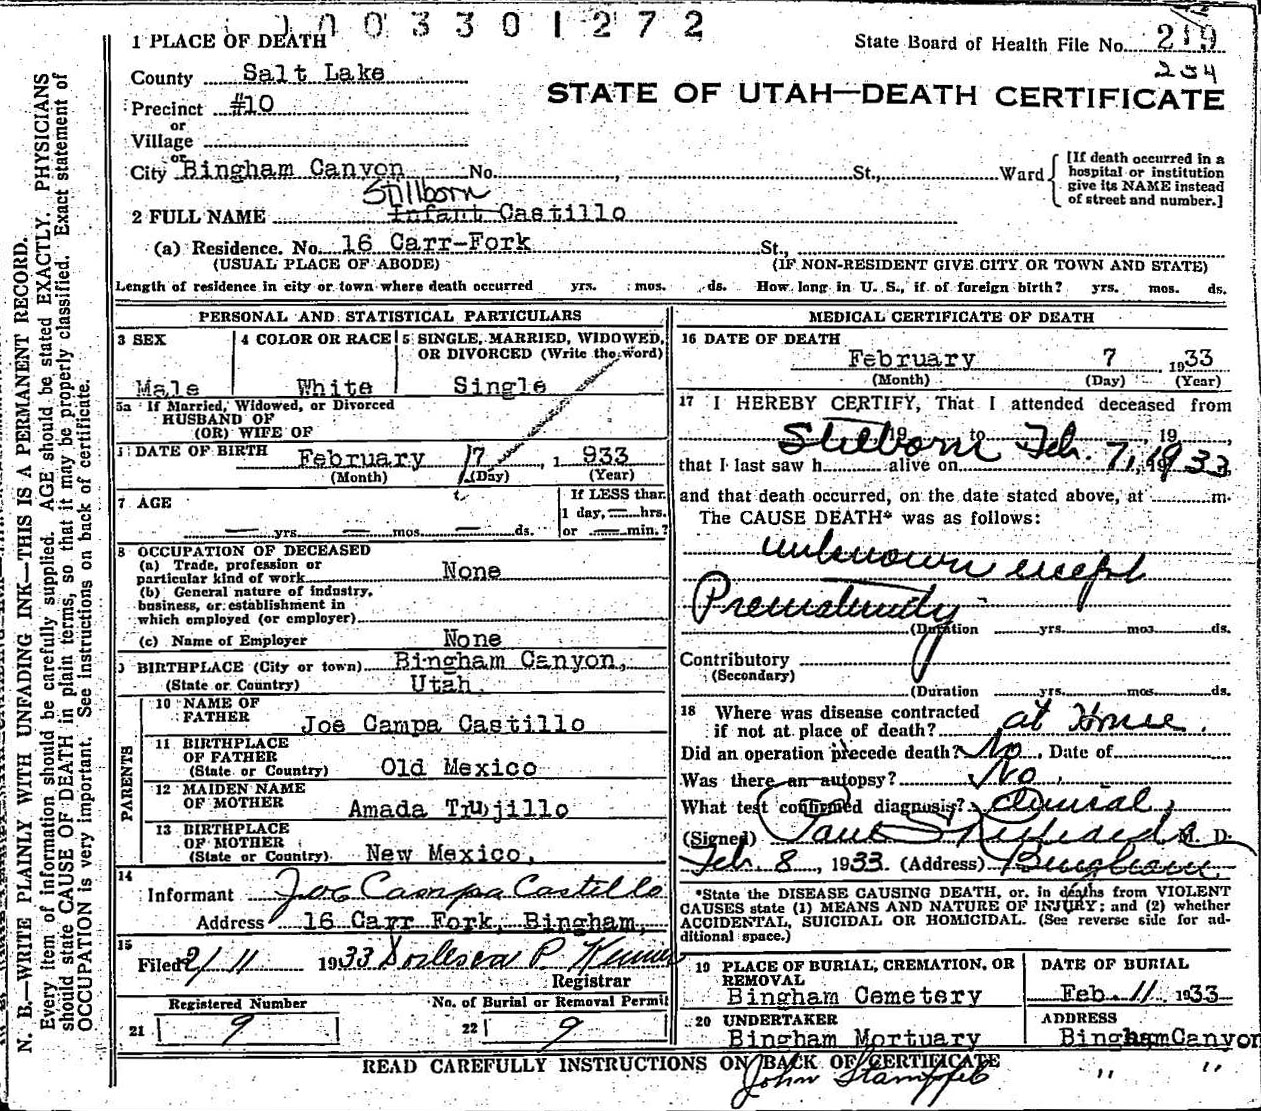 1003301272
1 PLACE OF DEATH
State Board of Health File No. 219
234
County Salt Lake
STATE OF UTAH—DEATH CERTIFICATE
Precinct #10
or
Village
or
City Bingham Canyon No. , St., Ward
[If death occurred in a hospital or institution give its NAME instead of street and number.]
Stillborn
2 FULL NAME Infant Castillo
(a) Residence. No. 16 Carr-Fork St.,
(USUAL PLACE OF ABODE) (IF NON-RESIDENT GIVE CITY OR TOWN AND STATE)
Length of residence in city or town where death occurred yrs. mos. ds. How long in U. S., if of foreign birth? yrs. mos. ds.
PERSONAL AND STATISTICAL PARTICULARS
3 SEX
Male
4 COLOR OR RACE
White
5 SINGLE, MARRIED, WIDOWED,
OR DIVORCED (Write the word)
Single
5a If Married, Widowed, or Divorced
HUSBAND OF
(OR) WIFE OF
DATE OF BIRTH February 17, 1933
(Month) (Day) (Year)
7 AGE
yrs. mos. ds.
If LESS than
1 day, hrs.
or min.?
8 OCCUPATION OF DECEASED
(a) Trade, profession or
particular kind of work None
(b) General nature of industry,
business, or establishment in
which employed (or employer)
(c) Name of Employer None
BIRTHPLACE (City or town) Bingham Canyon,
(State or Country) Utah
PARENTS
10 NAME OF
FATHER Joe Campa Castillo
11 BIRTHPLACE
OF FATHER
(State or Country) Old Mexico
12 MAIDEN NAME
OF MOTHER Amada Trujillo
13 BIRTHPLACE
OF MOTHER
(State or Country) New Mexico,
14
Informant Joe Campa Castillo
Address 16 Carr Fork, Bingham,
15
Filed 2/11 1933 P.
Registrar
Registered Number
21 9
No. of Burial or Removal Permit
22 9
MEDICAL CERTIFICATE OF DEATH
16 DATE OF DEATH
February 7 1933
(Month) (Day) (Year)
17 I HEREBY CERTIFY, That I attended deceased from
19 to 19 ,
Stillborn Feb. 7, 1933
that I last saw h alive on 19
and that death occurred, on the date stated above, at m.
The CAUSE DEATH* was as follows:
unknown except
Prematurity
(Duration yrs. mos. ds.
Contributory
(Secondary)
(Duration yrs. mos. ds.
18 Where was disease contracted
if not at place of death? at Home.
Did an operation precede death? No. Date of
Was there an autopsy? No.
What test confirmed diagnosis? Clinical
(Signed) Paul S Richards M. D.
Feb. 8, 1933 (Address) Bingham
*State the DISEASE CAUSING DEATH, or, in deaths from VIOLENT
CAUSES state (1) MEANS AND NATURE OF INJURY; and (2) whether
ACCIDENTAL, SUICIDAL OR HOMICIDAL. (See reverse side for ad-
ditional space.)
19 PLACE OF BURIAL, CREMATION, OR
REMOVAL
Bingham Cemetery
DATE OF BURIAL
Feb. 11 1933
20 UNDERTAKER
Bingham Mortuary
ADDRESS
Bingham Canyon
READ CAREFULLY INSTRUCTIONS ON BACK OF CERTIFICATE
John " "
N. B.—WRITE PLAINLY WITH UNFADING INK—THIS IS A PERMANENT RECORD.
Every item of information should be carefully supplied. AGE should be stated EXACTLY. PHYSICIANS
should state CAUSE OF DEATH in plain terms, so that it may be properly classified. Exact statement of
OCCUPATION is very important. See instructions on back of certificate.